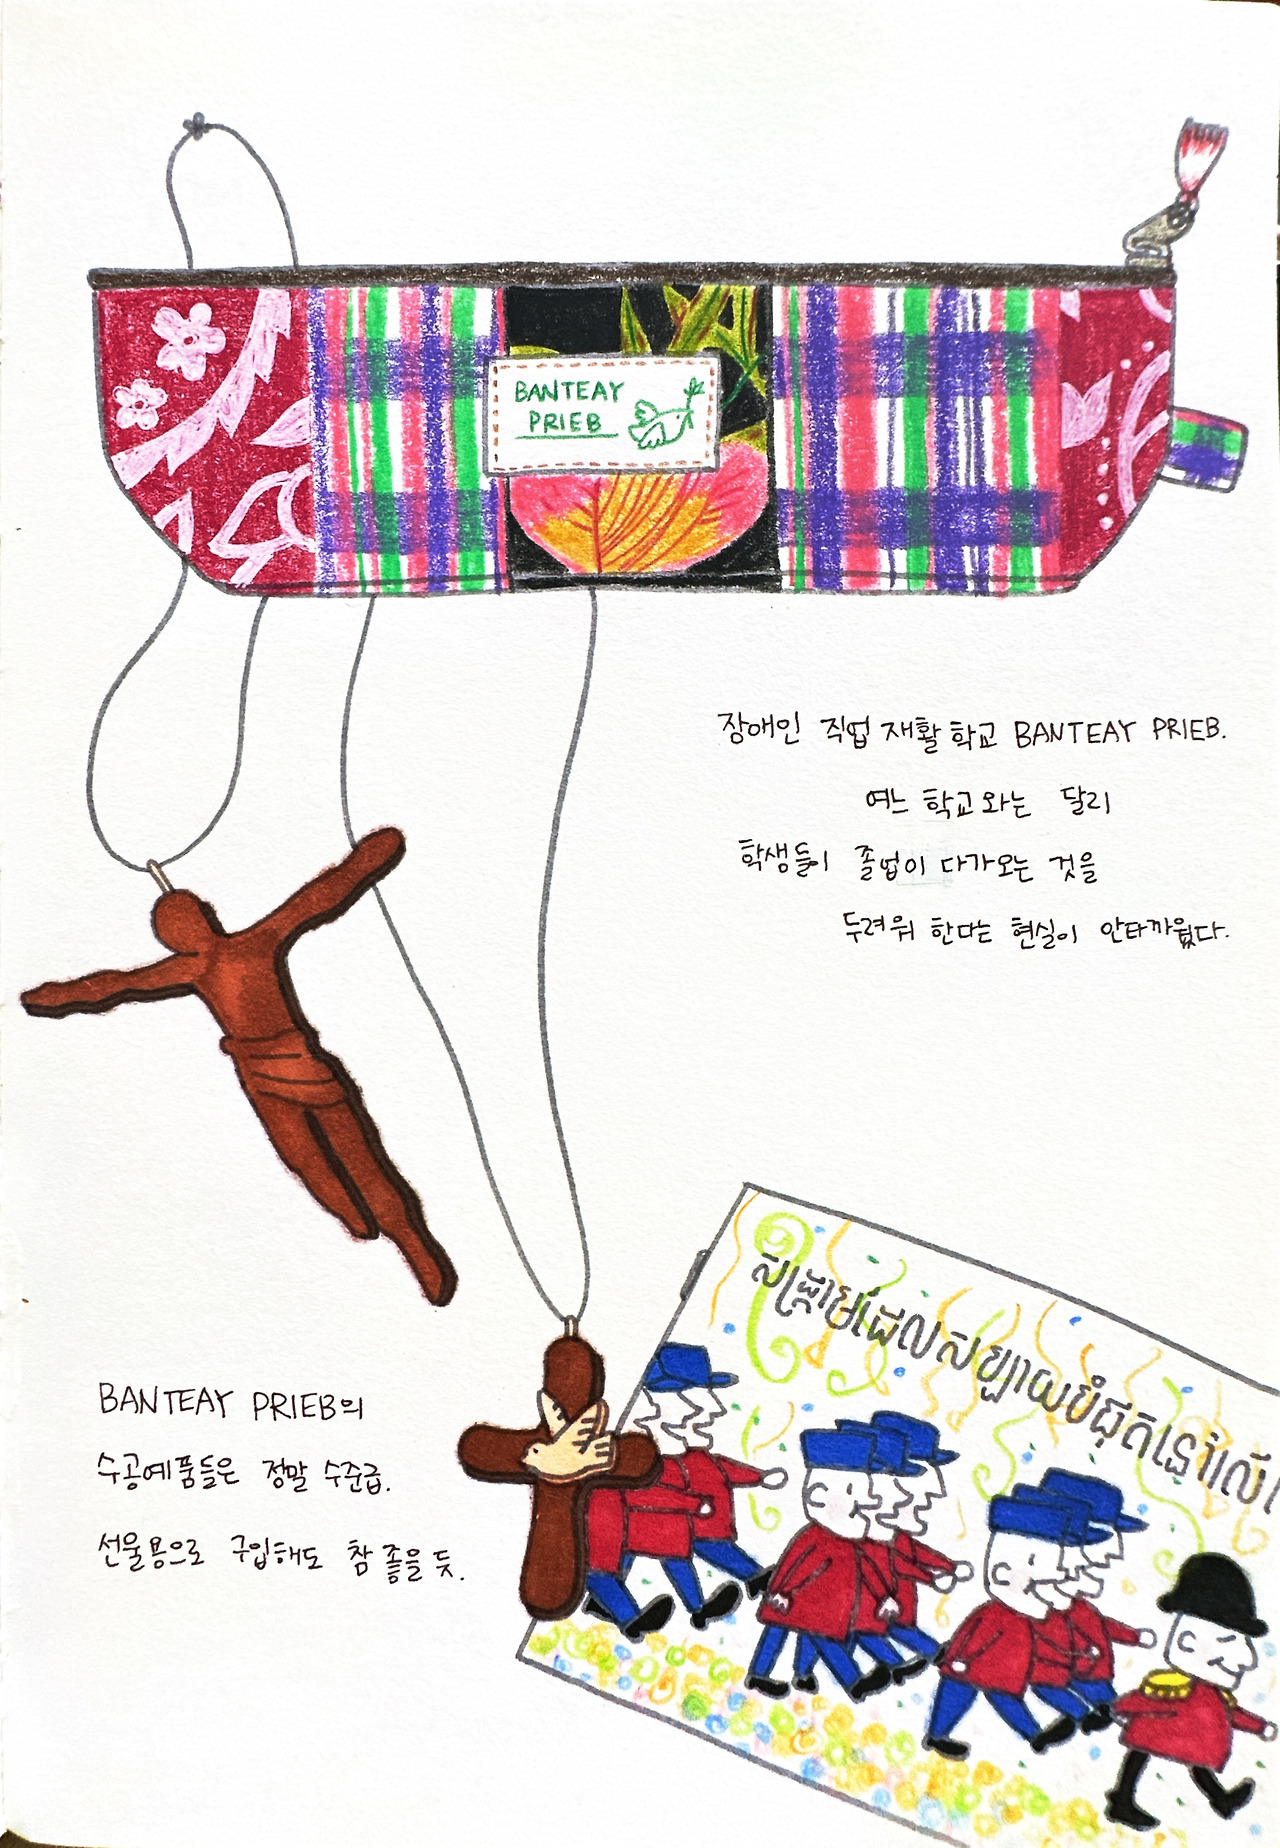 BANTEAY
PRIEB
장애인 직업 재활 학교 BANTEAY PRIEB.
여느 학교와는 달리
학생들이 졸업이 다가오는 것을
두려워 한다는 현실이 안타까웠다.
សង្គ្រាមដែលសប្បាយបំផុតនៅលើ
BANTEAY PRIEB의
수공예품들은 정말 수준급.
선물용으로 구입해도 참 좋을 듯.